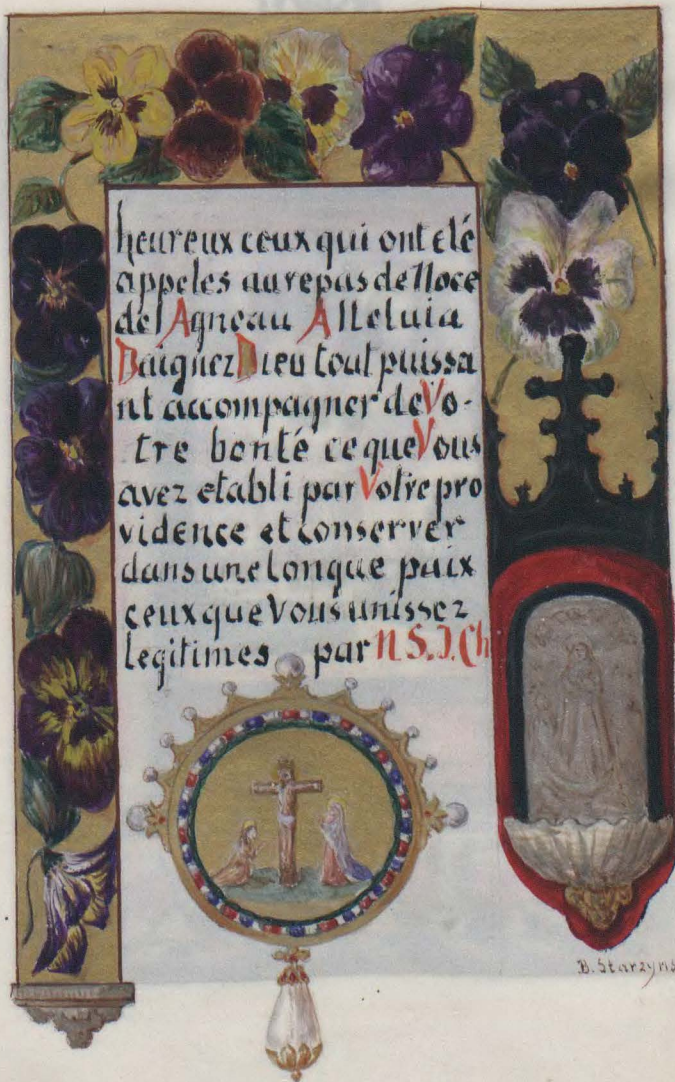 heureux ceux qui ont été
appeles au repas de Noce
del Agneau Alleluia
Daignez Dieu tout puissa
nt accompagner de Vo-
tre bonté ce que Vous
avez etabli par Votre pro
vidence et conserver
dans une longue paix
ceux que Vous unissez
legitimes par N.S.J.Ch
B. Starzyns